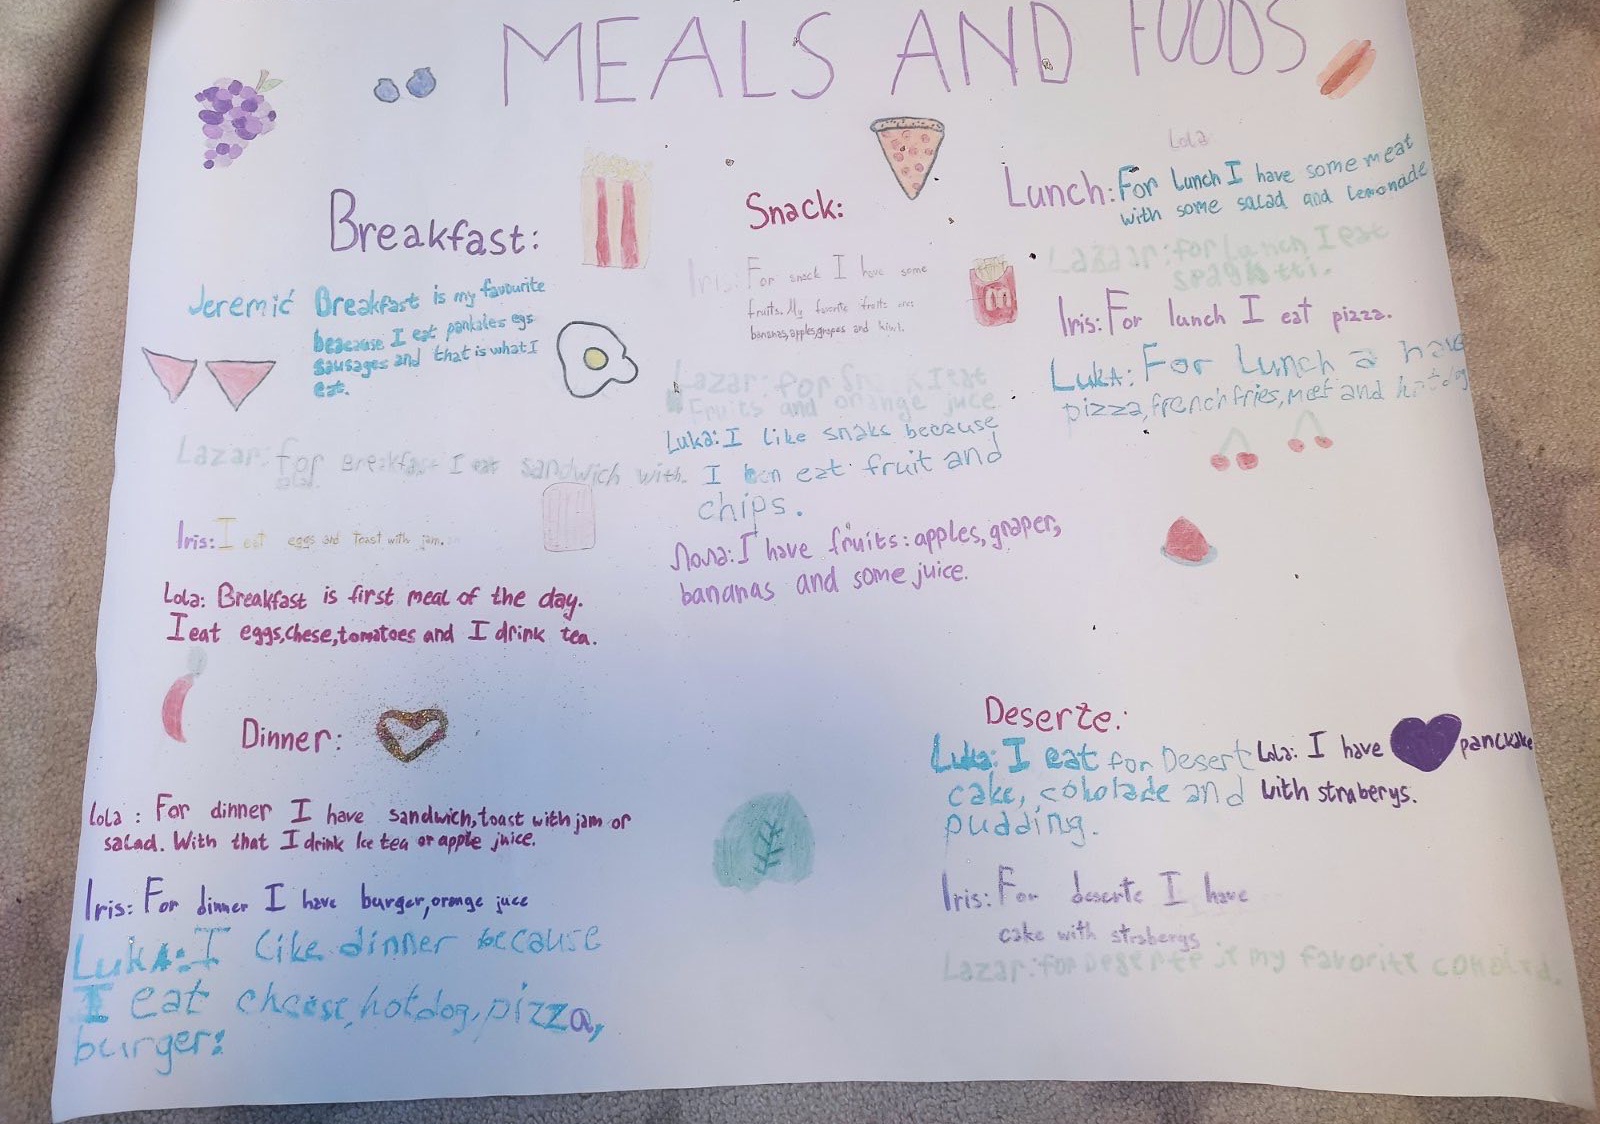 MEALS AND FOODS
Breakfast:
Jeremić Breakfast is my favourite
beacause I eat pankales egs
sausages and that is what I
eat.
Lazar: for Breakfast I eat sandwich with
Iris: I eat eggs and toast with jam.
Lola: Breakfast is first meal of the day.
I eat eggs,chese,tomatoes and I drink tea.
Snack:
Iris: For snack I have some
fruits. My favorite fruits
bananas,apples,grapes and kiwi.
Lazar: for I eat
Fruits and orange juce
Luka: I like snaks because
I can eat fruit and
chips.
I have fruits: apples, graper,
bananas and some juice.
Lola
Lunch: For lunch I have some meat
with some salad and lemonade
Lazaar: for lunch I eat
spaghtti.
Iris: For lunch I eat pizza.
Luka: For lunch a have
pizza,french fries, and hotdog
Dinner:
Lola : For dinner I have sandwich,toast with jam or
salad. With that I drink Ice tea or apple juice.
Iris: For dinner I have burger,orange juce
Luka: I like dinner because
I eat cheese,hotdog,pizza,
burger:
Deserte:
Luka: I eat for Desert
cake, coholade and
pudding.
Lola: I have panckake
with straberys.
Iris: For deserte I have
cake with straberys
Lazar: for Deserte is my favorite